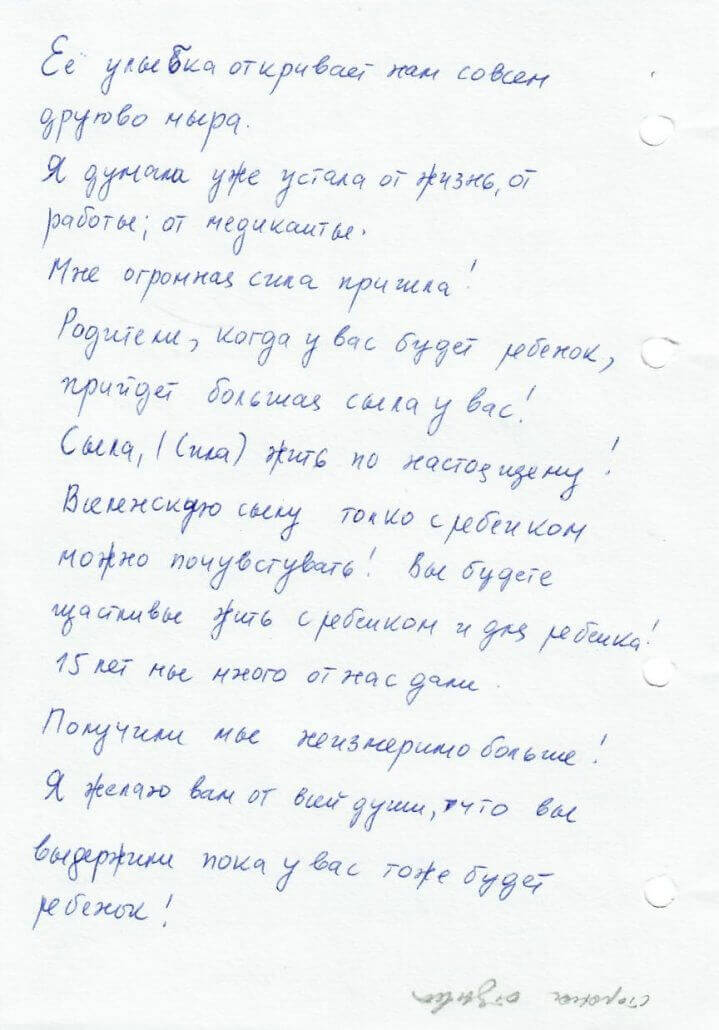 Её улыбка откривает нам совсем
друговo мыра.
Я думала уже устала от жизнь, от
работы; от медиканты.
Мне огромная сила пришла!
Родители, когда у вас будет ребенок,
прийдет большая сыла у вас!
Сыла, (Сила) жить по настоящему!
Вселенскую сылу толко с ребенком
можно почувстувать! Вы будете
щастливы жить с ребенком и для ребенка!
15 лет мы много от нас дали.
Получили мы неизмеримо больше!
Я желаю вам от всей души, что вы
выдержили пока у вас тоже будет
ребенок!